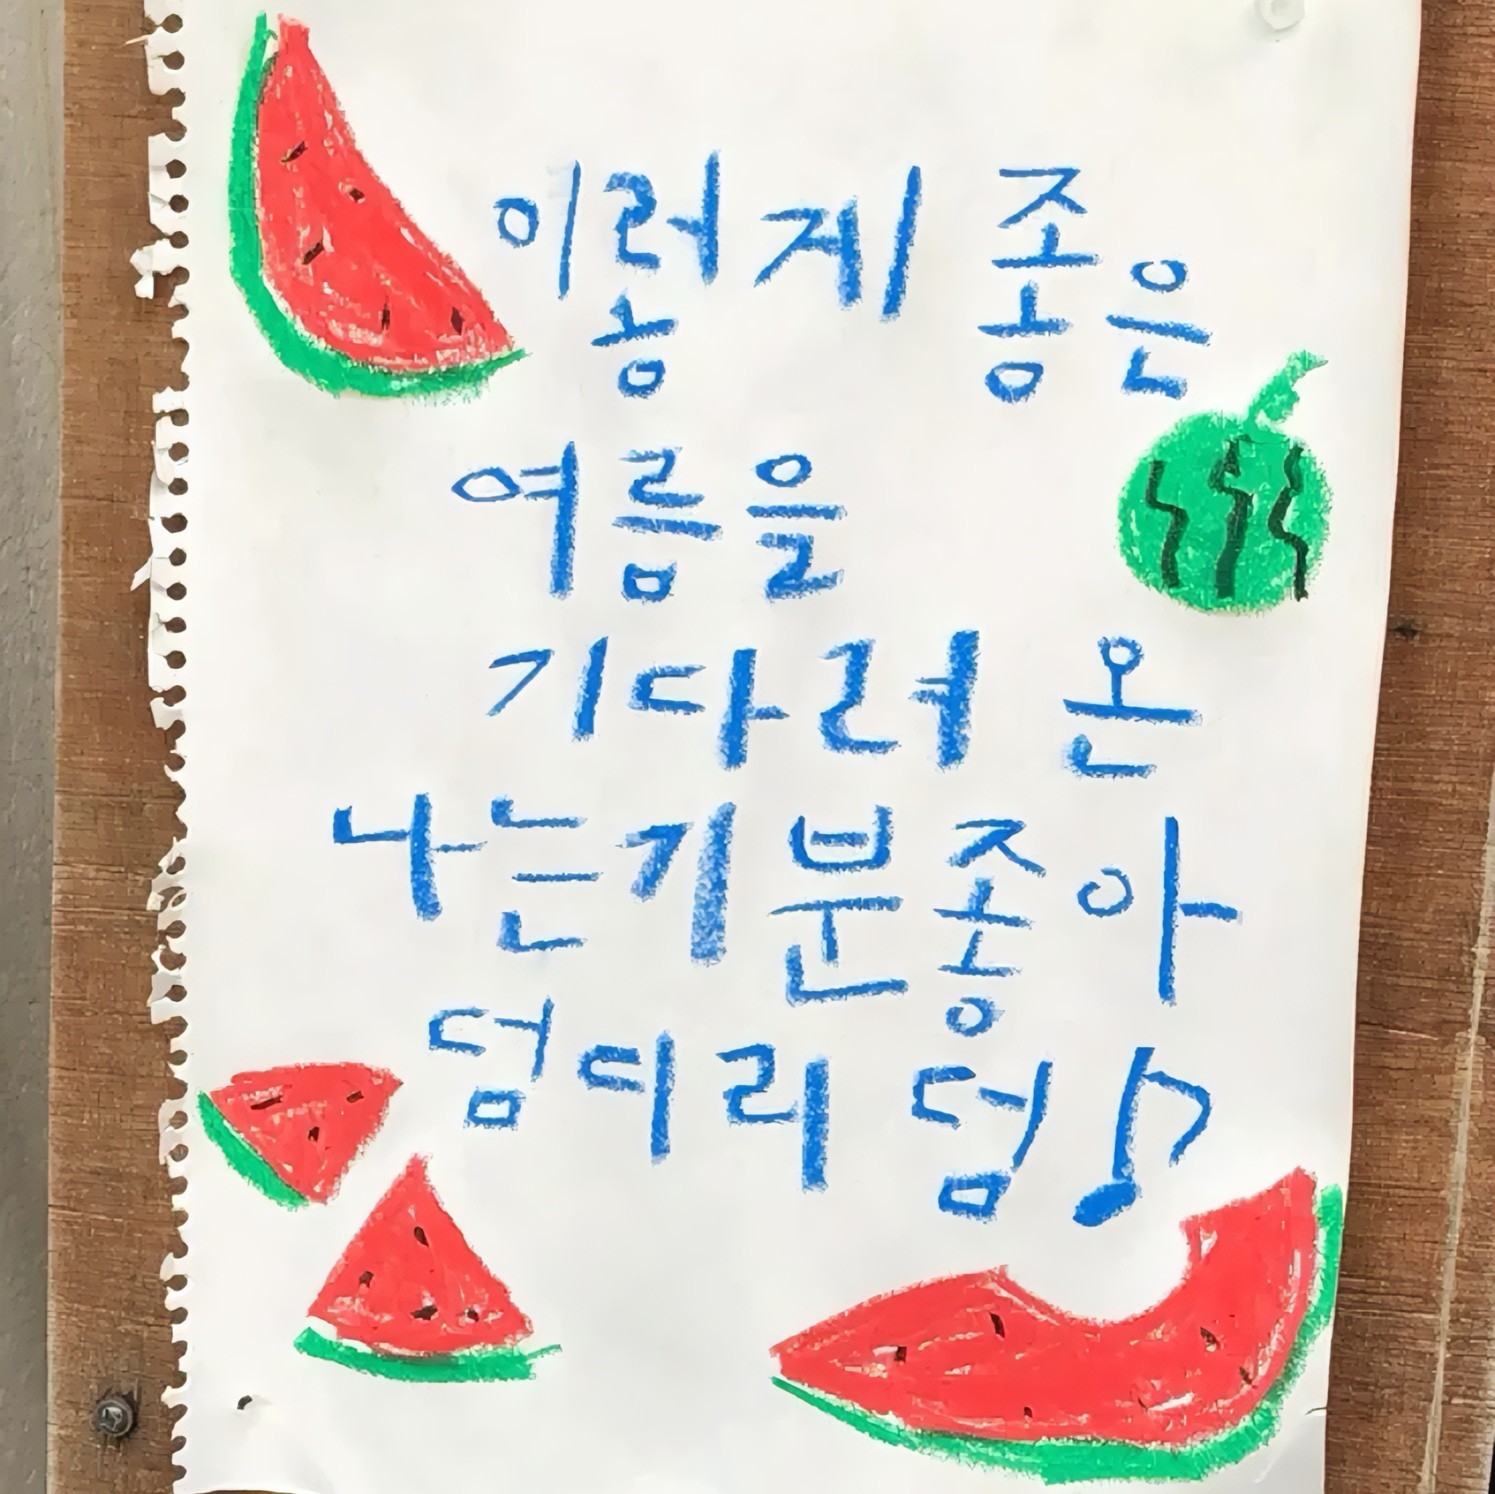 이렇게 좋은
여름을
기다려 온
나는기분좋아
덤디리 덤♪